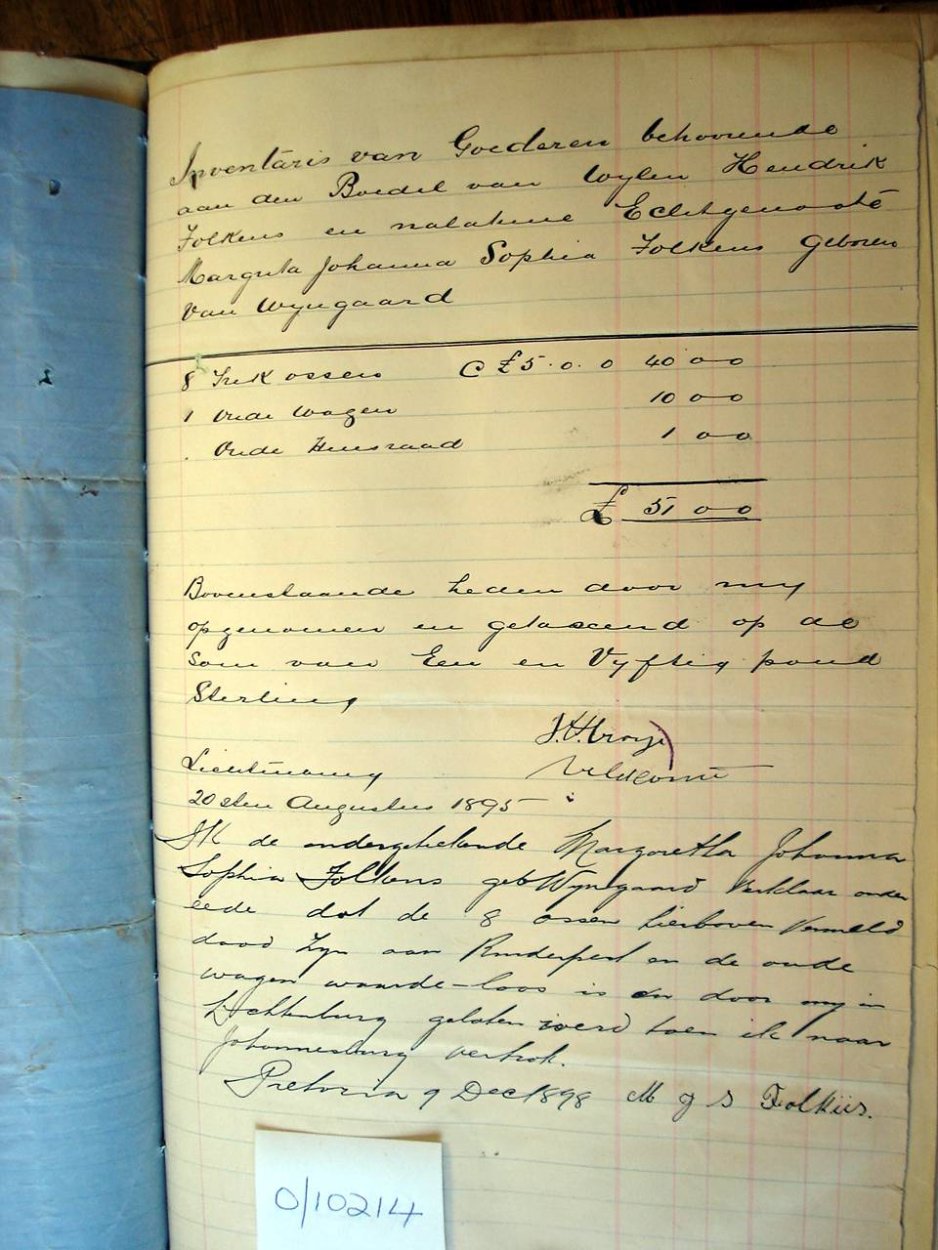 Inventaris van Goederen behoorende
aan den Boedel van Wylen Hendrik
Folkens en nalatene Echtgenoote
Margreta Johanna Sophia Folkens Geboren
van Wyngaard
8 Trek ossen @ £5.0.0 40 0 0
1 Oude Wagen 10 0 0
Oude Huisraad 1 0 0
£ 51 0 0
Bovenstaande heden door my
opgenomen en getaxeerd op de
Som van Een en Vyftig pond
Sterling
Veldcornet
Lichtenburg
20sten Augustus 1895
Ik de ondergetekende Margaretha Johanna
Sophia Folkens geb Wyngaard Verklaar onder
eede dat de 8 ossen hierboven Vermeld
dood Zyn aan Runderpest en de oude
wagen waarde-loos is en door my in
Lichtenburg gelaten werd toen ik naar
Johannesburg vertrok.
Pretoria 9 Dec 1898 M J S Folkus.
0/10214